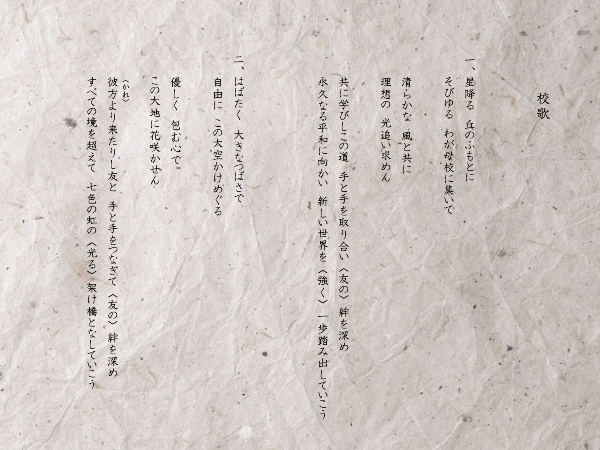 校歌
一、星降る 丘のふもとに
そびゆる わが母校に集いて
清らかな 風と共に
理想の 光追い求めん
共に学びしこの道 手と手を取り合い〈友の〉絆を深め
永久なる平和に向かい 新しい世界を〈強く〉一歩踏み出していこう
二、はばたく 大きなつばさで
自由に この大空かけめぐる
優しく 包む心で
この大地に花咲かせん
〈かれ〉
彼方より来たりし友と 手と手をつなぎて〈友の〉絆を深め
すべての境を超えて 七色の虹の〈光る〉架け橋となしていこう